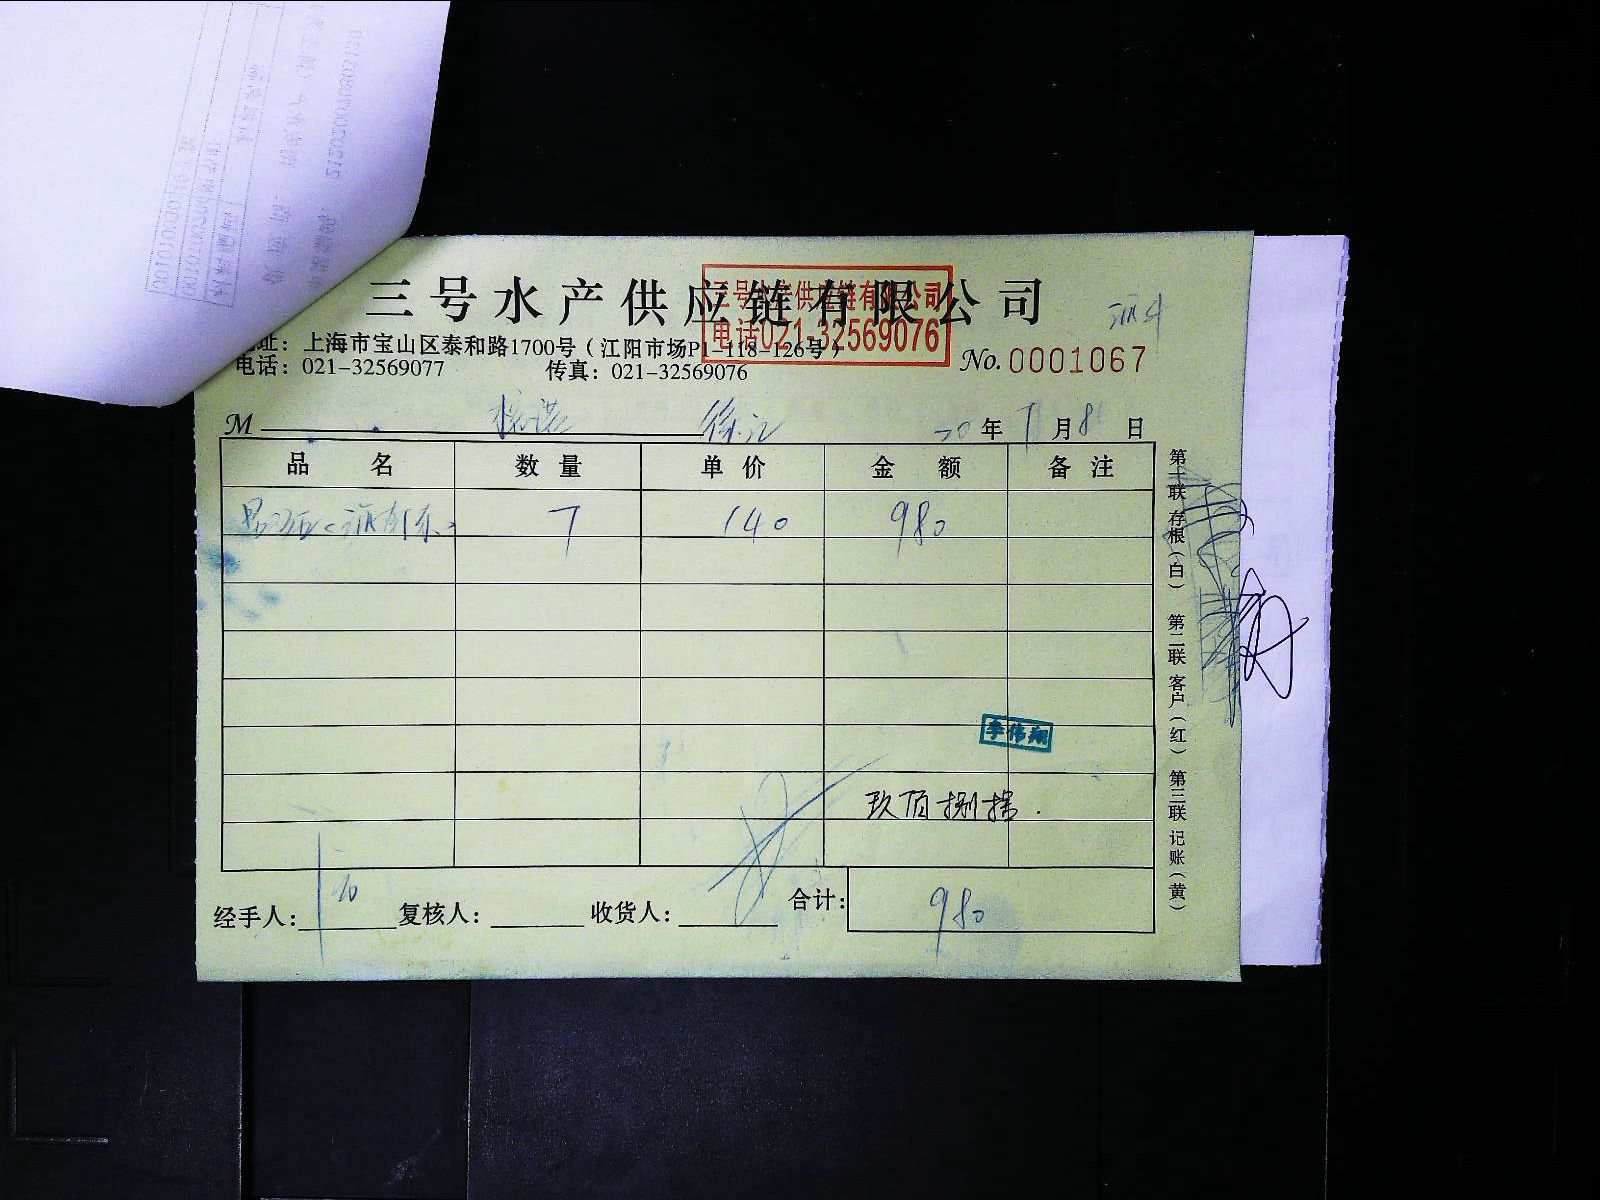 三号水产供应链有限公司
三号水产供应链有限公司
电话021-32569076
地址：上海市宝山区泰和路1700号（江阳市场P1-118-126号）
电话：021-32569077 传真：021-32569076
No.0001067
M 徐汇 20年7月8日
品名 数量 单价 金额 备注
7 140 980
李伟翔
玖佰捌拾.
经手人： 复核人： 收货人： 合计：980
第一联存根（白） 第二联客户（红） 第三联记账（黄）